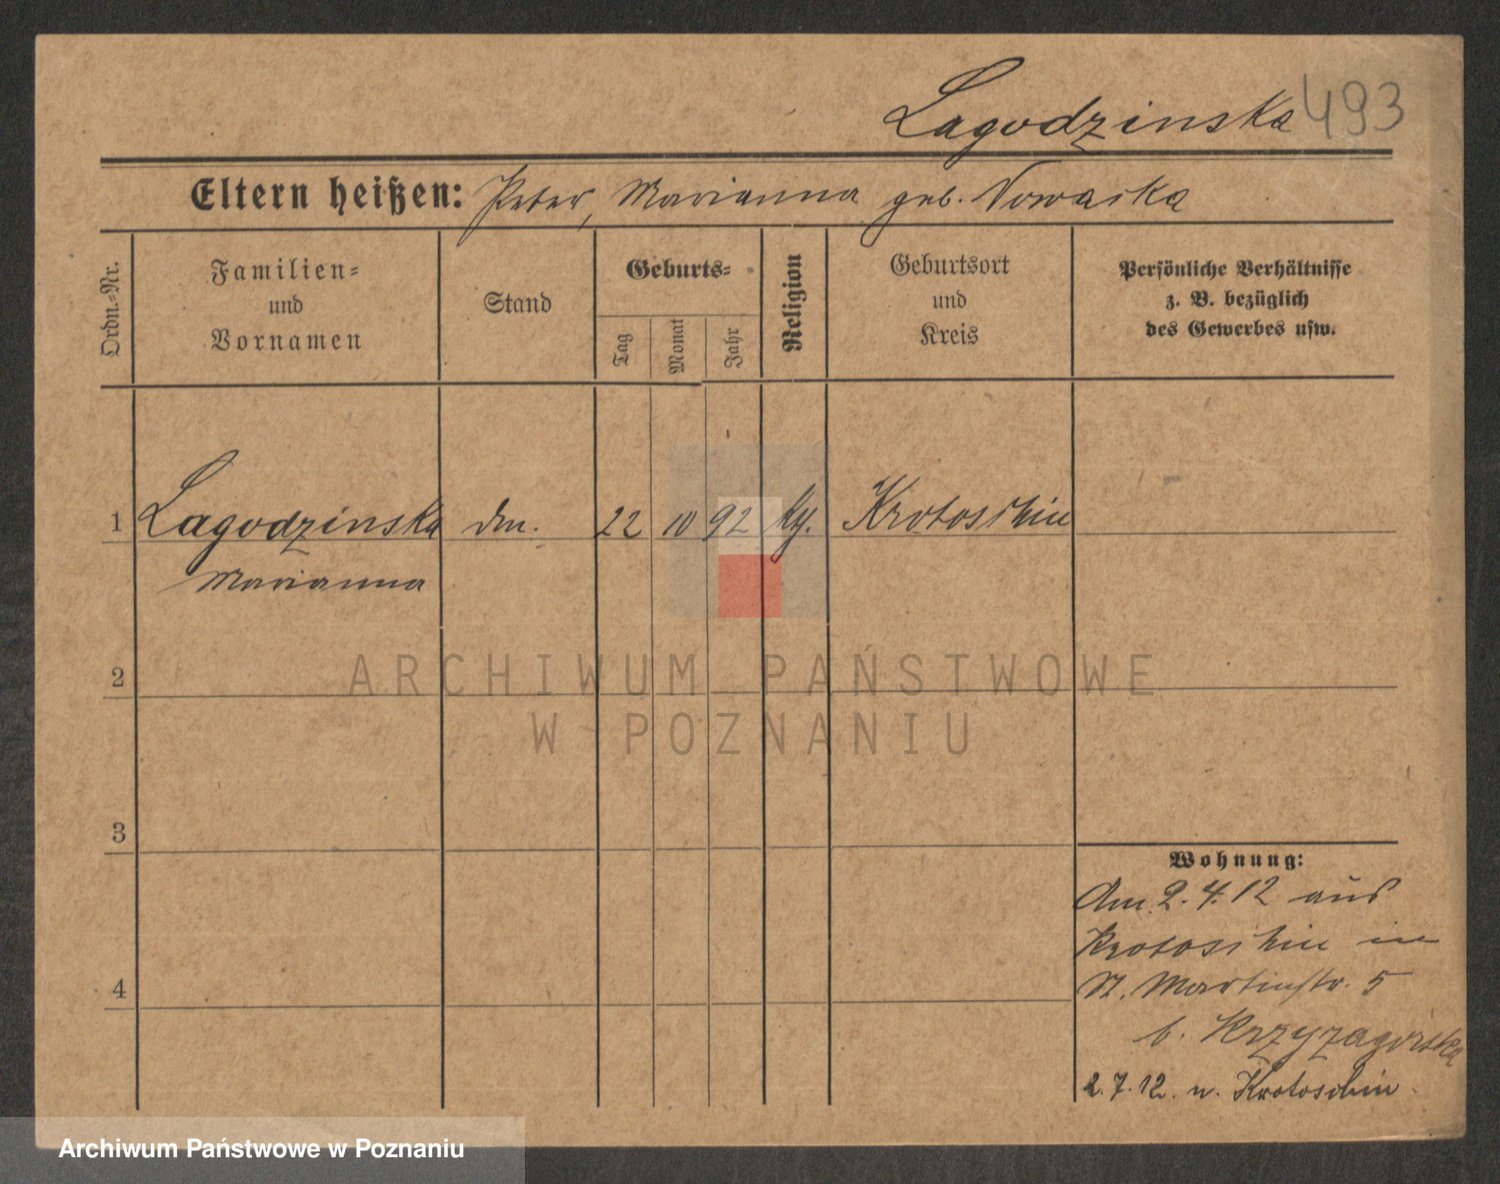 Lagodzinska 493
Eltern heißen: Peter, Marianna geb. Nowacka
Ordn.-Nr.
Familien-
und
Vornamen
Stand
Geburts-
Tag
Monat
Jahr
Religion
Geburtsort
und
Kreis
Persönliche Verhältnisse
z. B. bezüglich
des Gewerbes usw.
1 Lagodzinska 22 10 92 Krotoschin
Marianna
2
3
4
Wohnung:
Am 2.4.12 aus
Krotoschin in
St. Martinstr. 5
b. Krzyzagórska
2.7.12. n. Krotoschin
ARCHIWUM PAŃSTWOWE
W POZNANIU
Archiwum Państwowe w Poznaniu